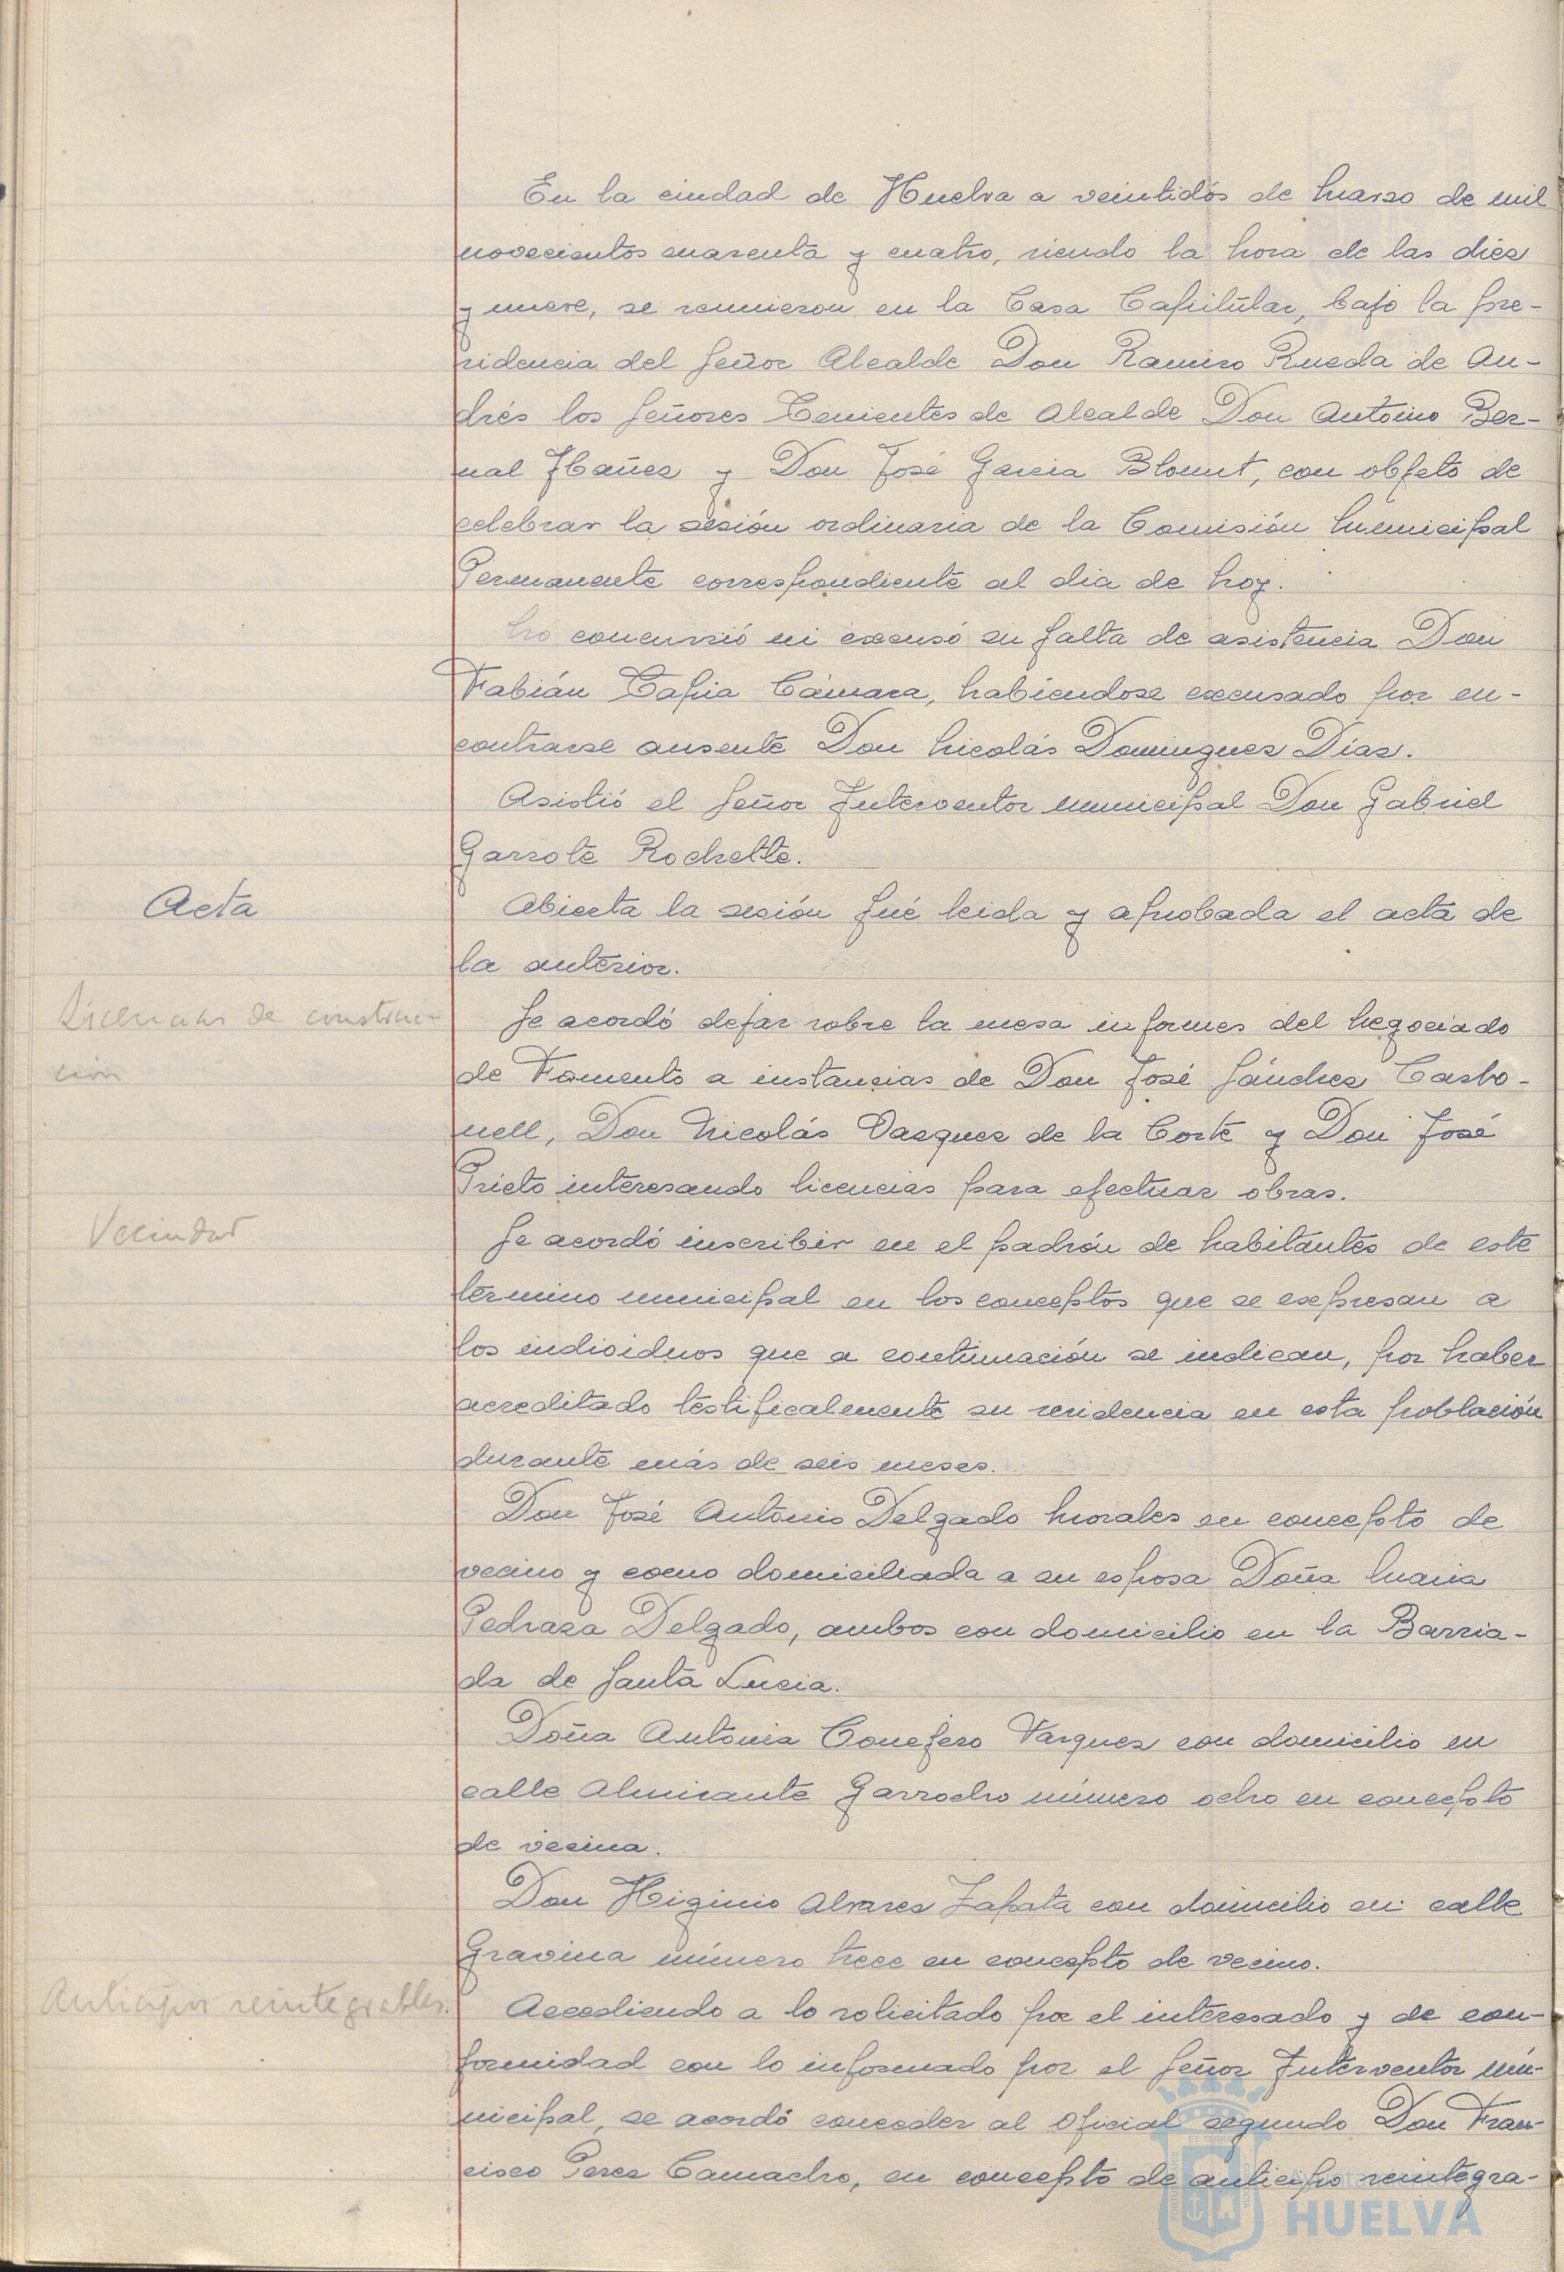 En la ciudad de Huelva a veintidós de Marzo de mil
novecientos cuarenta y cuatro, siendo la hora de las diez
y nueve, se reunieron en la Casa Capitular, bajo la pre-
sidencia del Señor Alcalde Don Ramiro Rueda de An-
drés los Señores Tenientes de Alcalde Don Antonio Ber-
nal Ibañez y Don José Garcia Blount, con objeto de
celebrar la sesión ordinaria de la Comisión Municipal
Permanente correspondiente al dia de hoy.
No concurrió ni excusó su falta de asistencia Don
Fabián Tapia Cámara, habiendose excusado por en-
contrarse ausente Don Nicolás Dominguez Díaz.
Asistió el Señor Interventor municipal Don Gabriel
Garrote Rochette.
Acta
Abierta la sesión fué leida y aprobada el acta de
la anterior.
Licencias de construc-
ción
Se acordó dejar sobre la mesa informes del Negociado
de Fomento a instancias de Don José Sánchez Carbo-
nell, Don Nicolás Vazquez de la Corte y Don José
Prieto interesando licencias para efectuar obras.
Vecindad
Se acordó inscribir en el padrón de habitantes de este
término municipal en los conceptos que se expresan a
los individuos que a continuación se indican, por haber
acreditado testificalmente su residencia en esta población
durante más de seis meses.
Don José Antonio Delgado Morales en concepto de
vecino y como domiciliada a su esposa Doña Maria
Pedraza Delgado, ambos con domicilio en la Barria-
da de Santa Lucia.
Doña Antonia Conejero Vazquez con domicilio en
calle Almirante Garrocho número ocho en concepto
de vecina.
Don Higinio Alvarez Zapata con domicilio en calle
Gravina número trece en concepto de vecino.
Anticipos reintegrables.
Accediendo a lo solicitado por el interesado y de con-
formidad con lo informado por el Señor Interventor mu-
nicipal, se acordó conceder al Oficial segundo Don Fran-
cisco Perez Camacho, en concepto de anticipo reintegra-
HUELVA